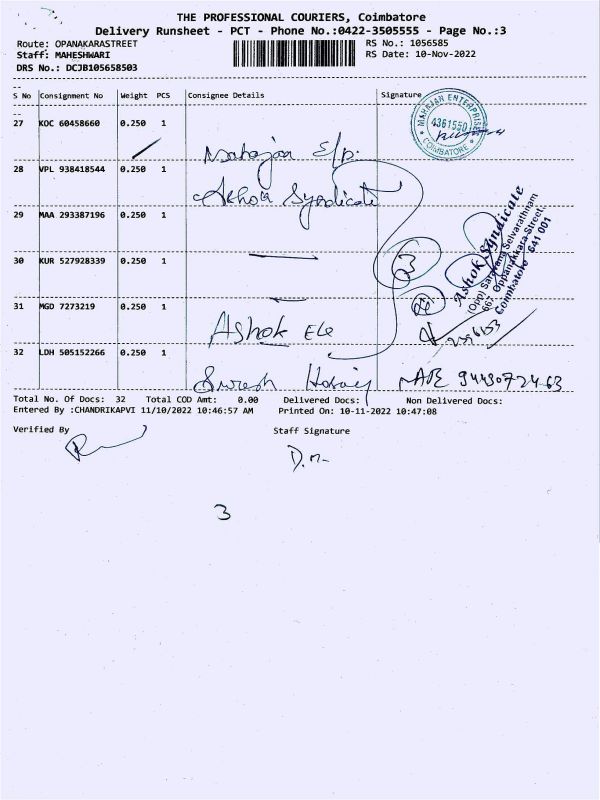 THE PROFESSIONAL COURIERS, Coimbatore
Delivery Runsheet - PCT - Phone No.:0422-3505555 - Page No.:3
Route: OPANAKARASTREET RS No.: 1056585
Staff: MAHESHWARI RS Date: 10-Nov-2022
DRS No.: DCJB105658503
S No Consignment No Weight PCS Consignee Details Signature
27 KOC 60458660 0.250 1
MAHAJAN ENTERPRISE
4361550
COIMBATORE
28 VPL 938418544 0.250 1
Ashok Syndicate
29 MAA 293387196 0.250 1
30 KUR 527928339 0.250 1
3
Ashok Syndicate
(Opp) Saravana Selvarathnam
667, Oppanakkara Street,
Coimbatore - 641 001
31 MGD 7273219 0.250 1
Ashok Ele
32 LDH 505152266 0.250 1
Suresh
Total No. Of Docs: 32 Total COD Amt: 0.00 Delivered Docs: Non Delivered Docs:
Entered By :CHANDRIKAPVI 11/10/2022 10:46:57 AM Printed On: 10-11-2022 10:47:08
Verified By Staff Signature
3